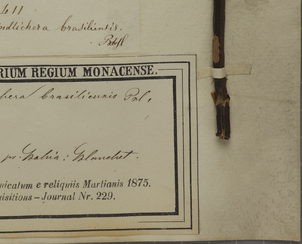 411
ndlichera brasiliensis.
RIUM REGIUM MONACENSE.
hera brasiliensis
pr. Bahia: Blanchet.
unicatum e reliquiis Martianis 1875.
uisitions – Journal Nr. 229.